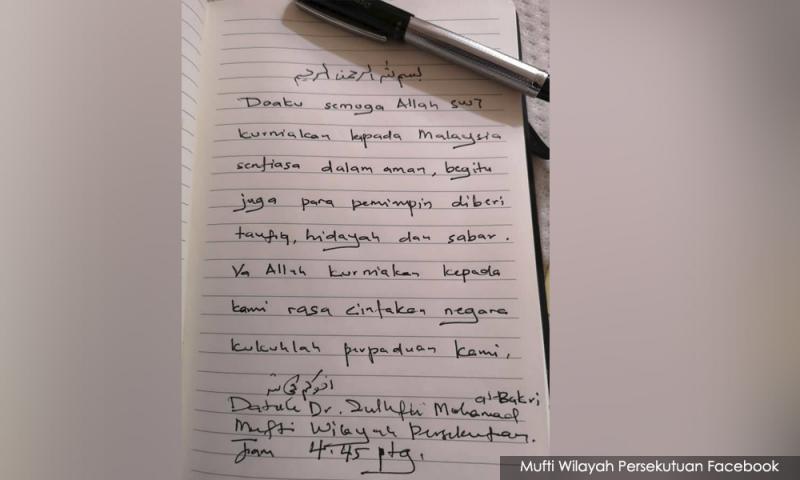 بسم الله الرحمن الرحيم
Doaku semoga Allah swt
kurniakan kepada Malaysia
sentiasa dalam aman, begitu
juga para pemimpin diberi
taufiq, hidayah dan sabar.
Ya Allah kurniakan kepada
kami rasa cintakan negara
kukuhlah perpaduan kami.
اخوكم في الله
Datuk Dr. Zulkifli Mohamad al-Bakri
Mufti Wilayah Persekutuan.
Jam 4.45 ptg.
Mufti Wilayah Persekutuan Facebook